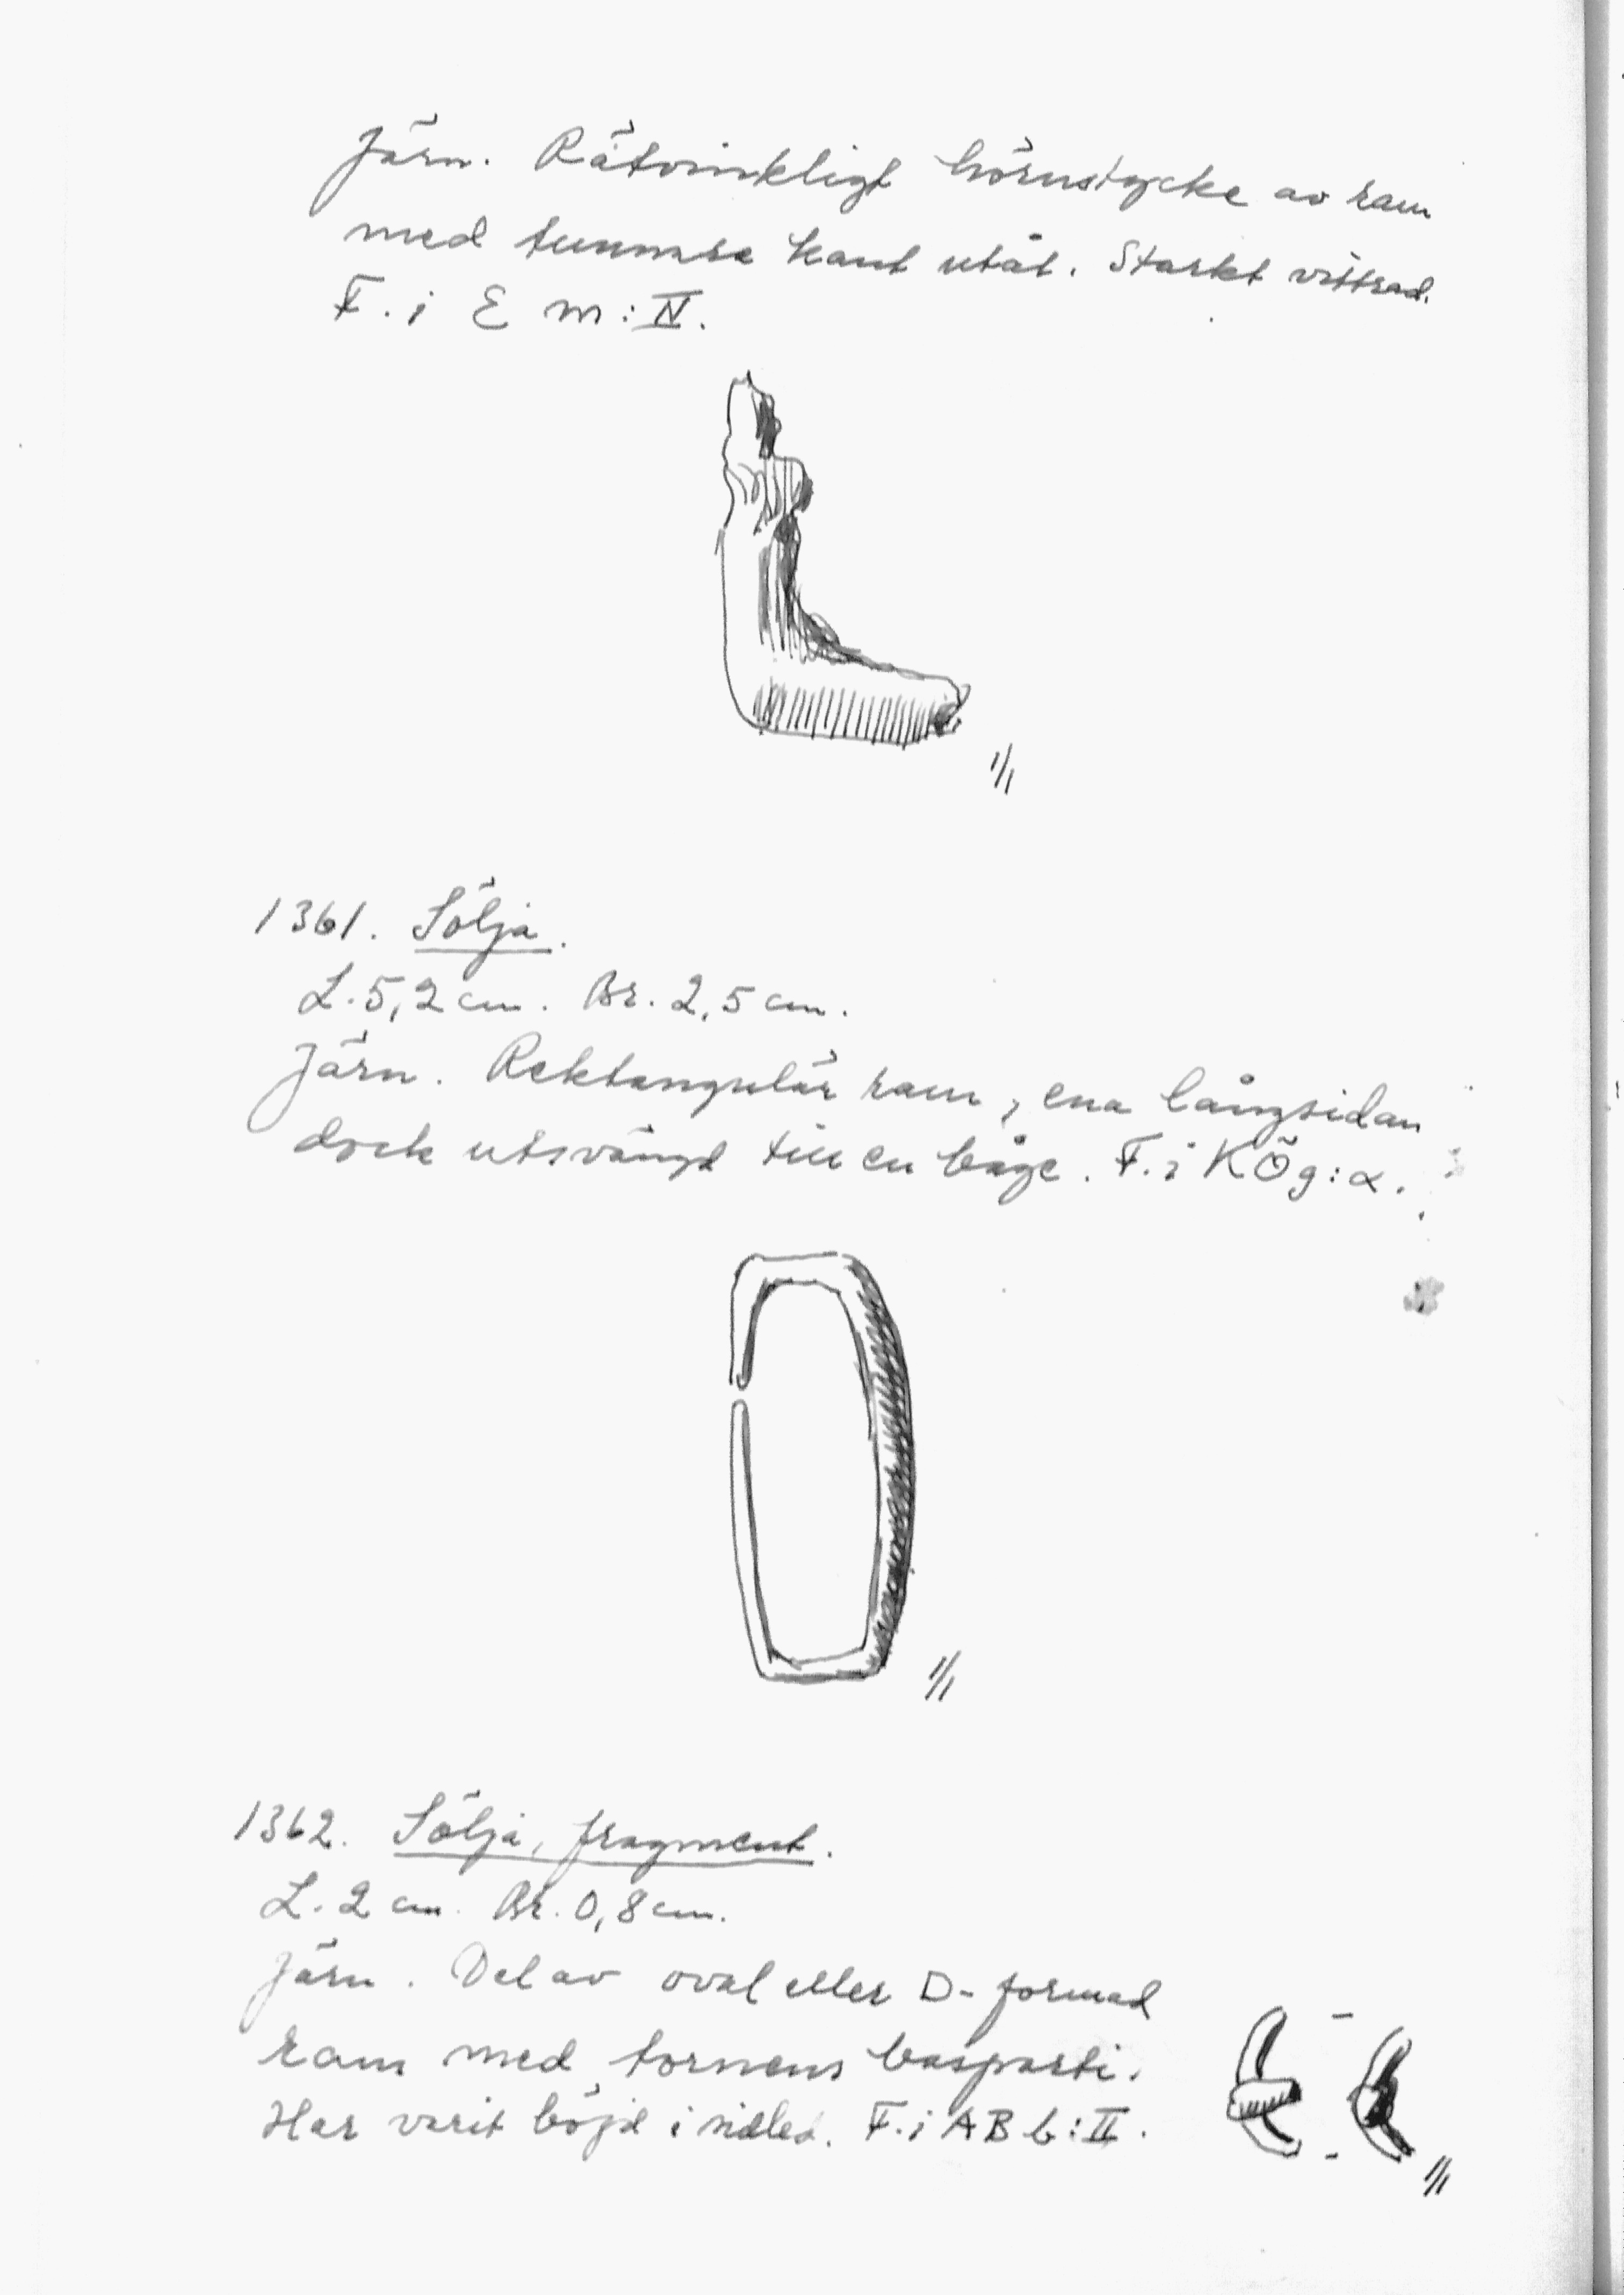 Järn. Rätvinkligt hörnstycke av ram
med tunnare kant utåt. Starkt vittrad.
F. i E m:IV.
1/1
1361. Sölja.
L. 5,2 cm. Br. 2,5 cm.
Järn. Rektangulär ram, ena långsidan
dock utsvängd till en båge. F. i KÖg:α.
1/1
1362. Sölja, fragment.
L. 2 cm. Br. 0,8 cm.
Järn. Del av oval eller D-formad
ram med tornens basparti.
Har varit böjd i sidled. F. i ABb:II.
1/1